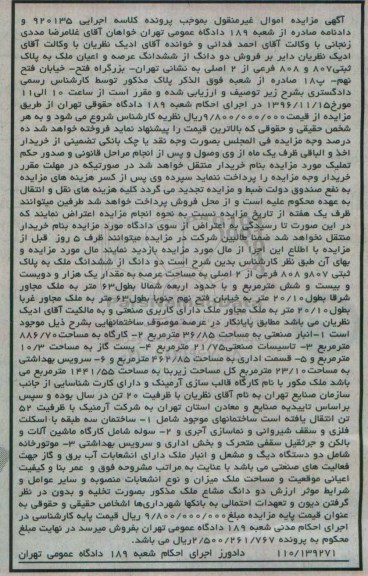 آگهی مزایده اموال غیرمنقول بموجب پرونده کلاسه اجرایی ۹۲۰۱۳۵ و
دادنامه صادره از شعبه ۱۸۹ دادگاه عمومی تهران خواهان آقای غلامرضا مددی
زنجانی با وکالت آقای احمد فدائی و خوانده آقای ادیک نظریان با وکالت آقای
ادیک نظریان دایر بر فروش دو دانگ از ششدانگ عرصه و اعیان ملک به پلاک
ثبتی۸۰۷ و ۸۰۸ فرعی از ۲ اصلی به نشانی تهران- بزرگراه فتح- خیابان فتح
نهم- پ۱۸ صادره از شعبه فوق الذکر پلاک مذکور توسط کارشناس رسمی
دادگستری بشرح زیر توصیف و ارزیابی شده و مقرر است از ساعت ۱۰ الی۱۱
مورخ۱۳۹۶/۱۱/۱۵ در اجرای احکام شعبه ۱۸۹ دادگاه حقوقی تهران از طریق
مزایده از قیمت۹/۸۰۰/۰۰۰/۰۰۰ریال نظریه کارشناس شروع می شود و به هر
شخص حقیقی و حقوقی که بالاترین قیمت را پیشنهاد نماید فروخته خواهد شد ده
درصد وجه مزایده فی المجلس بصورت وجه نقد یا چک بانکی تضمینی از خریدار
اخذ و الباقی ظرف یک ماه از وی وصول و پس از انجام مراحل قانونی و صدور حکم
تملیک مورد مزایده بنام خریدار منتقل خواهد شد در صورتیکه در مهلت مقرر
خریدار وجه مزایده را پرداخت ننماید سپرده وی پس از کسر هزینه های مزایده
به نفع صندوق دولت ضبط و مزایده تجدید می گردد کلیه هزینه های نقل و انتقال
به عهده محکوم علیه است و از محل فروش پرداخت خواهد شد طرفین میتوانند
ظرف یک هفته از تاریخ مزایده نسبت به نحوه انجام مزایده اعتراض نمایند که
در این صورت تا رسیدگی به اعتراض از سوی دادگاه مورد مزایده بنام خریدار
منتقل نخواهد شد ضمنا طالبین شرکت در مزایده میتوانند ظرف ۵ روز قبل از
مزایده با اطلاع این اجرا از مال مورد مزایده بازدید نمایند مال مورد مزایده و
بهای آن طبق نظر کارشناس بدین شرح است دو دانگ از ششدانگ ملک به پلاک
ثبتی ۸۰۷و ۸۰۸ فرعی از ۲ اصلی به مساحت عرصه به مقدار یک هزار و دویست
و بیست و شش مترمربع و با حدود اربعه شمالا بطول۶۳ متر به ملک مجاور
شرقا بطول۲۰/۱۰ متر به خیابان فتح نهم جنوبا بطول۶۲ متر به ملک مجاور غربا
بطول۲۰/۱۰ متر به ملک مجاور ملک دارای کاربری صنعتی و به مالکیت آقای ادیک
نظریان می باشد مطابق پایانکار در عرصه موصوف ساختمانهایی بشرح ذیل موجود
است ۱-انبار صنعتی به مساحت ۳۶/۸۵ مترمربع ۲- کارگاه به مساحت۸۸۶/۷۰
مترمربع ۳- تاسیسات صنعتی۲۱/۷۵ مترمربع ۴- پست گاز به مساحت ۱۰/۳
مترمربع و ۵- قسمت اداری به مساحت ۴۶۲/۸۵ مترمربع و ۶- سرویس بهداشتی
به مساحت۲۳/۱۰ مترمربع کل مساحت زیربنا به مساحت ۱۴۴۱/۵۵ مترمربع می
باشد ملک مکور با نام کارگاه قالب سازی آرمینک و دارای کارت شناسایی از جانب
سازمان صنایع تهران به نام آقای نظریان با ظرفیت ۲۰ تن در سال بوده و سپس
براساس تاییدیه صنایع و معادن استان تهران به شرکت آرمنیک با ظرفیت ۵۲
تن انتقال یافته است ساختمانهای موجود شامل ۱- ساختمان سه طبقه با اسکلت
فلزی و سقف شیروانی و نماسازی آجری و ۲- سوله شامل کارگاه ماشین آلات و
بالکن و جرثقیل سقفی متحرک و بخش اداری و سرویس بهداشتی ۳- موتورخانه
شامل دو دستگاه دیگ و مشعل و انبار ملک دارای انشعابات آب برق و گاز جهت
فعالیت های صنعتی می باشد با عنایت به مراتب مشروحه فوق و عمر بنا و کیفیت
اعیانی موقعیت و مساحت ملک میزان و نوع انشعابات منصوبه و سایر عوامل و
شرایط موثر ارزش دو دانگ مشاع ملک مذکور بصورت تخلیه و بدون در نظر
گرفتن دیون و تعهدات احتمالی به بانکها شهرداریها اشخاص حقیقی و حقوقی به
عنوان قیمت پایه مزایده مبلغ۹/۸۰۰/۰۰۰/۰۰۰ ریال قیمت پایه کارشناسی در
اجرای احکام مدنی شعبه ۱۸۹ دادگاه عمومی تهران بفروش میرسد در نهایت مبلغ
محکوم به ۲/۵۰۰/۲۶۱/۷۶۷ریال می باشد.
۱۱۰/۱۳۹۲۷۱ دادورز اجرای احکام شعبه ۱۸۹ دادگاه عمومی تهران